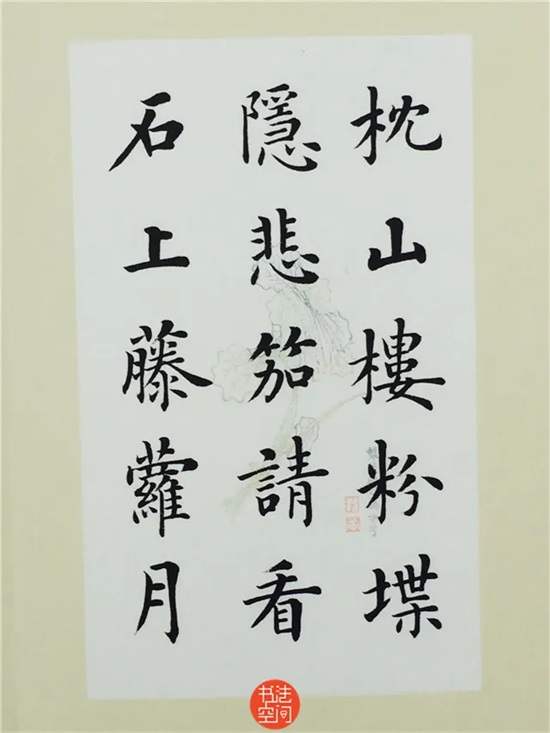 枕山樓粉堞
隱悲笳請看
石上藤蘿月
书法
空间